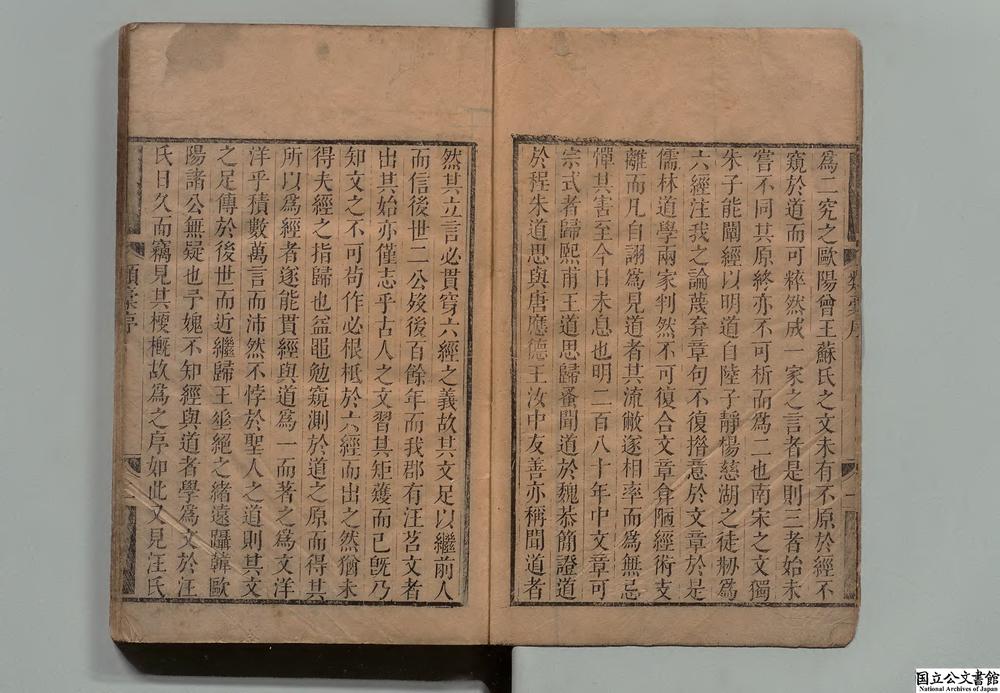 爲二究之歐陽曾王蘇氏之文未有不原於經不
窺於道而可粹然成一家之言者是則三者始未
嘗不同其原終亦不可析而爲二也南宋之文獨
朱子能闡經以明道自陸子靜楊慈湖之徒剏爲
六經注我之論蔑弃章句不復措意於文章於是
儒林道學兩家判然不可復合文章弇陋經術支
離而凡自詡爲見道者其流敝遂相率而爲無忌
憚其害至今日未息也明二百八十年中文章可
宗式者歸熙甫王道思歸蚤聞道於魏恭簡證道
於程朱道思與唐應德王汝中友善亦稱聞道者
類稾序
一
然其立言必貫穿六經之義故其文足以繼前人
而信後世二公歿後百餘年而我郡有汪苕文者
出其始亦僅志乎古人之文習其矩矱而已旣乃
知文之不可苟作必根柢於六經而出之然猶未
得夫經之指歸也益黽勉窺測於道之原而得其
所以爲經者遂能貫經與道爲一而著之爲文洋
洋乎積數萬言而沛然不悖於聖人之道則其文
之足傳於後世而近繼歸王垂絕之緒遠躡韓歐
陽諸公無疑也予媿不知經與道者學爲文於汪
氏日久而竊見其梗槪故爲之序如此又見汪氏
類稾序
國立公文書館
National Archives of Japan